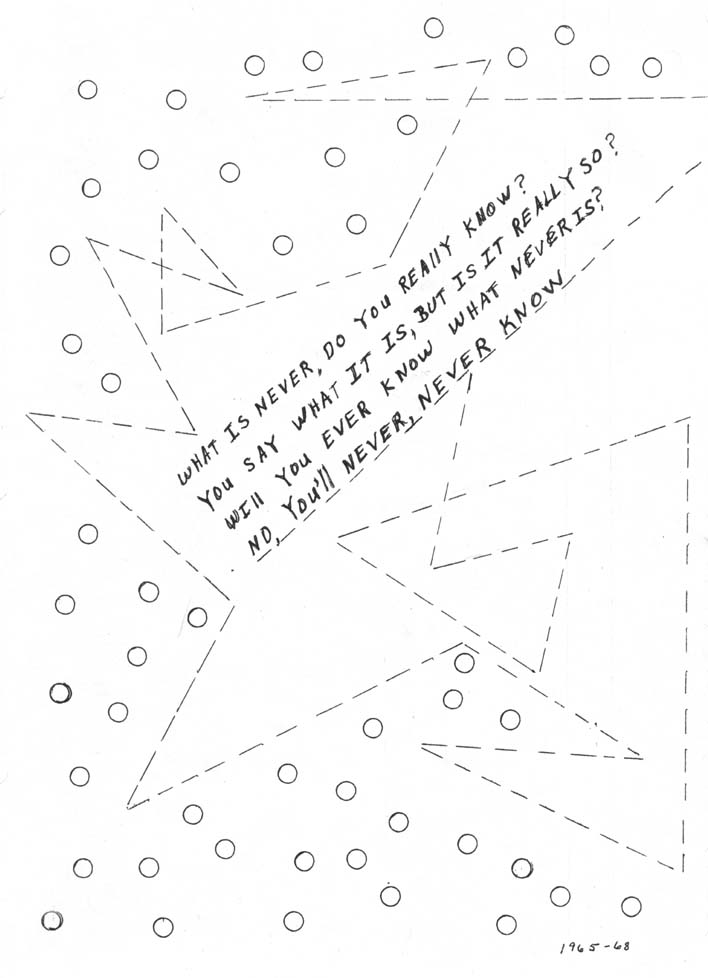 WHAT IS NEVER, DO YOU REALLY KNOW?
YOU SAY WHAT IT IS, BUT IS IT REALLY SO?
WILL YOU EVER KNOW WHAT NEVER IS?
NO, YOU'LL NEVER, NEVER KNOW
1965-68